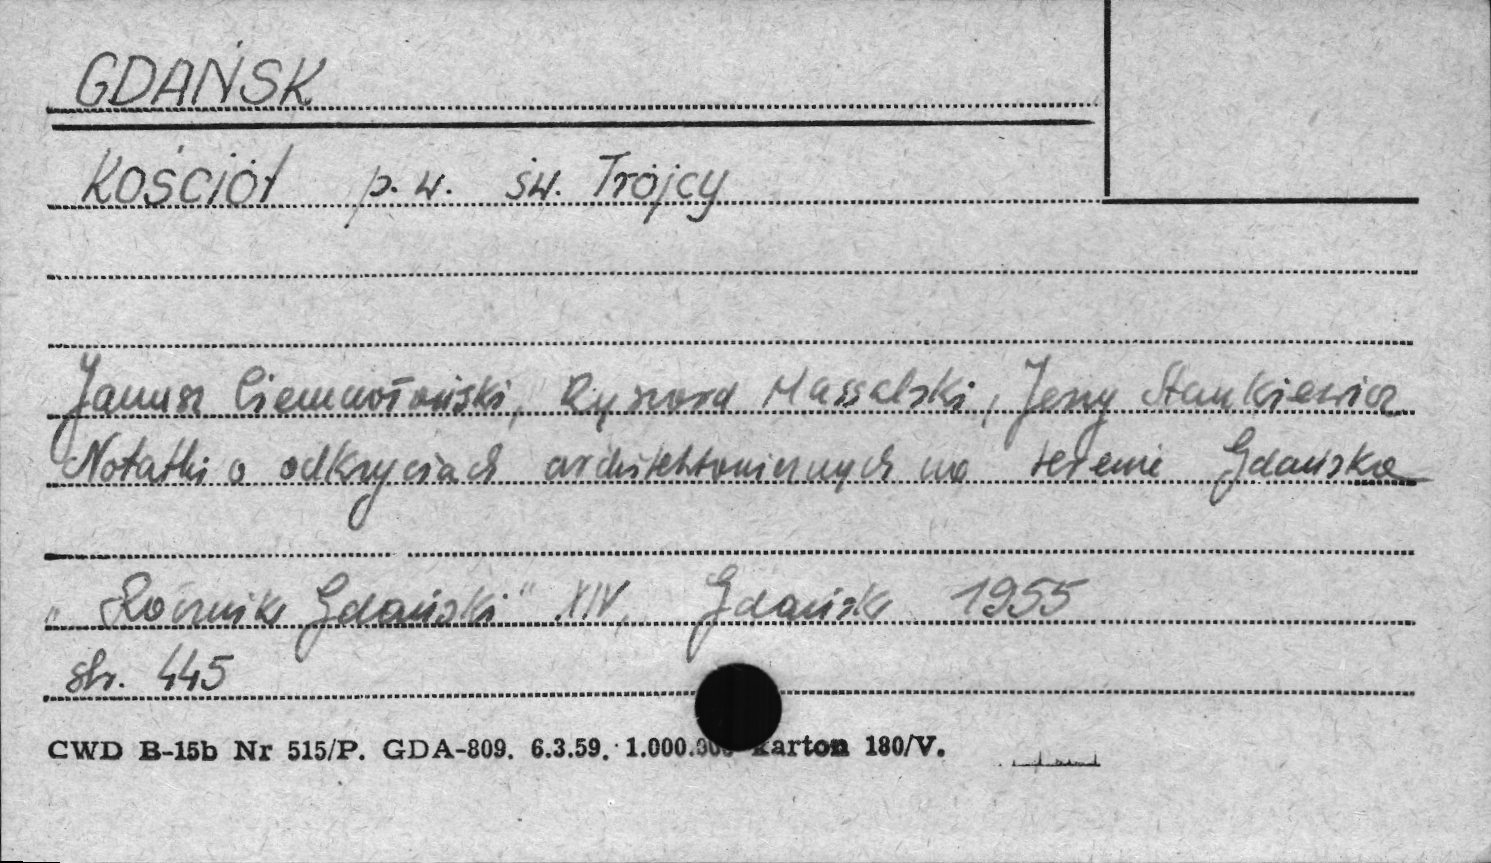 GDAŃSK
KOŚCIÓŁ p.w. św. Trójcy
Janusz Ciemnołoński, Ryszard Massalski, Jerzy Stankiewicz
Notatki o odkryciach architektonicznych na terenie Gdańska
„Rocznik Gdański" XIV, Gdańsk 1955
str. 445
CWD B-15b Nr 515/P. GDA-809. 6.3.59. 1.000.000 karton 180/V.